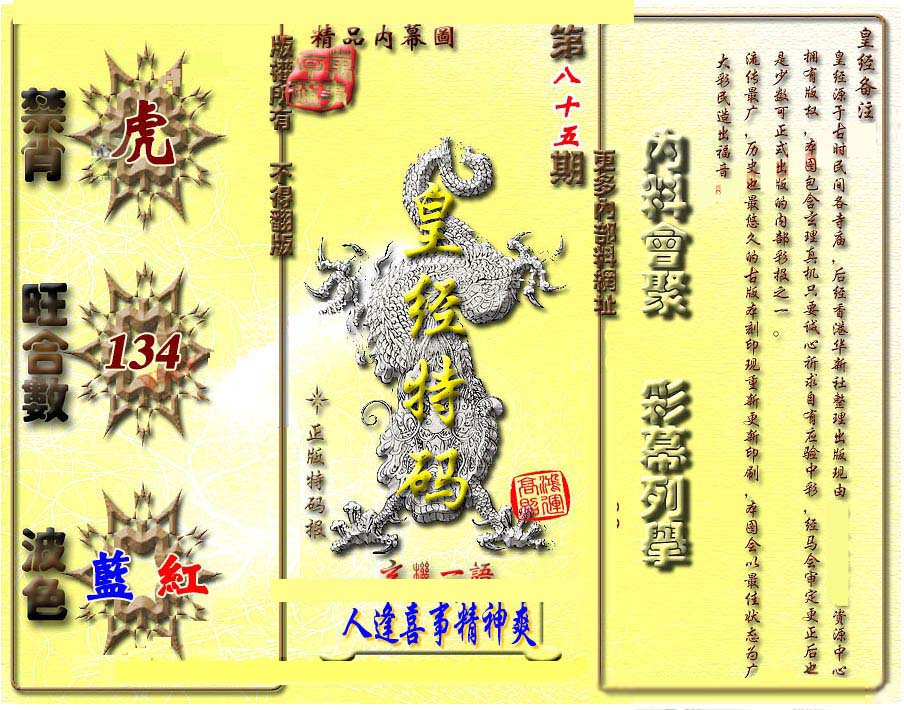 禁肖
虎
旺合數
134
波色
藍 紅
版權所有 不得翻版
精品内幕圖
第八十五期
更多内部料網址
皇经特码
正版特码报
鴻運高照
玄機一語
人逢喜事精神爽
内料會聚 彩幕列學
皇经备注
皇经源于古时民间各寺庙,后经香港华新社整理出版现由 资源中心
拥有版权,本图包含玄理真机只要诚心祈求自有应验中彩,经马会审定更正后也
是少数可正式出版的内部彩报之一。
流传最广,历史也最悠久的古版本刻印现重新更新印刷,本图会以最佳状态为广
大彩民造出福音